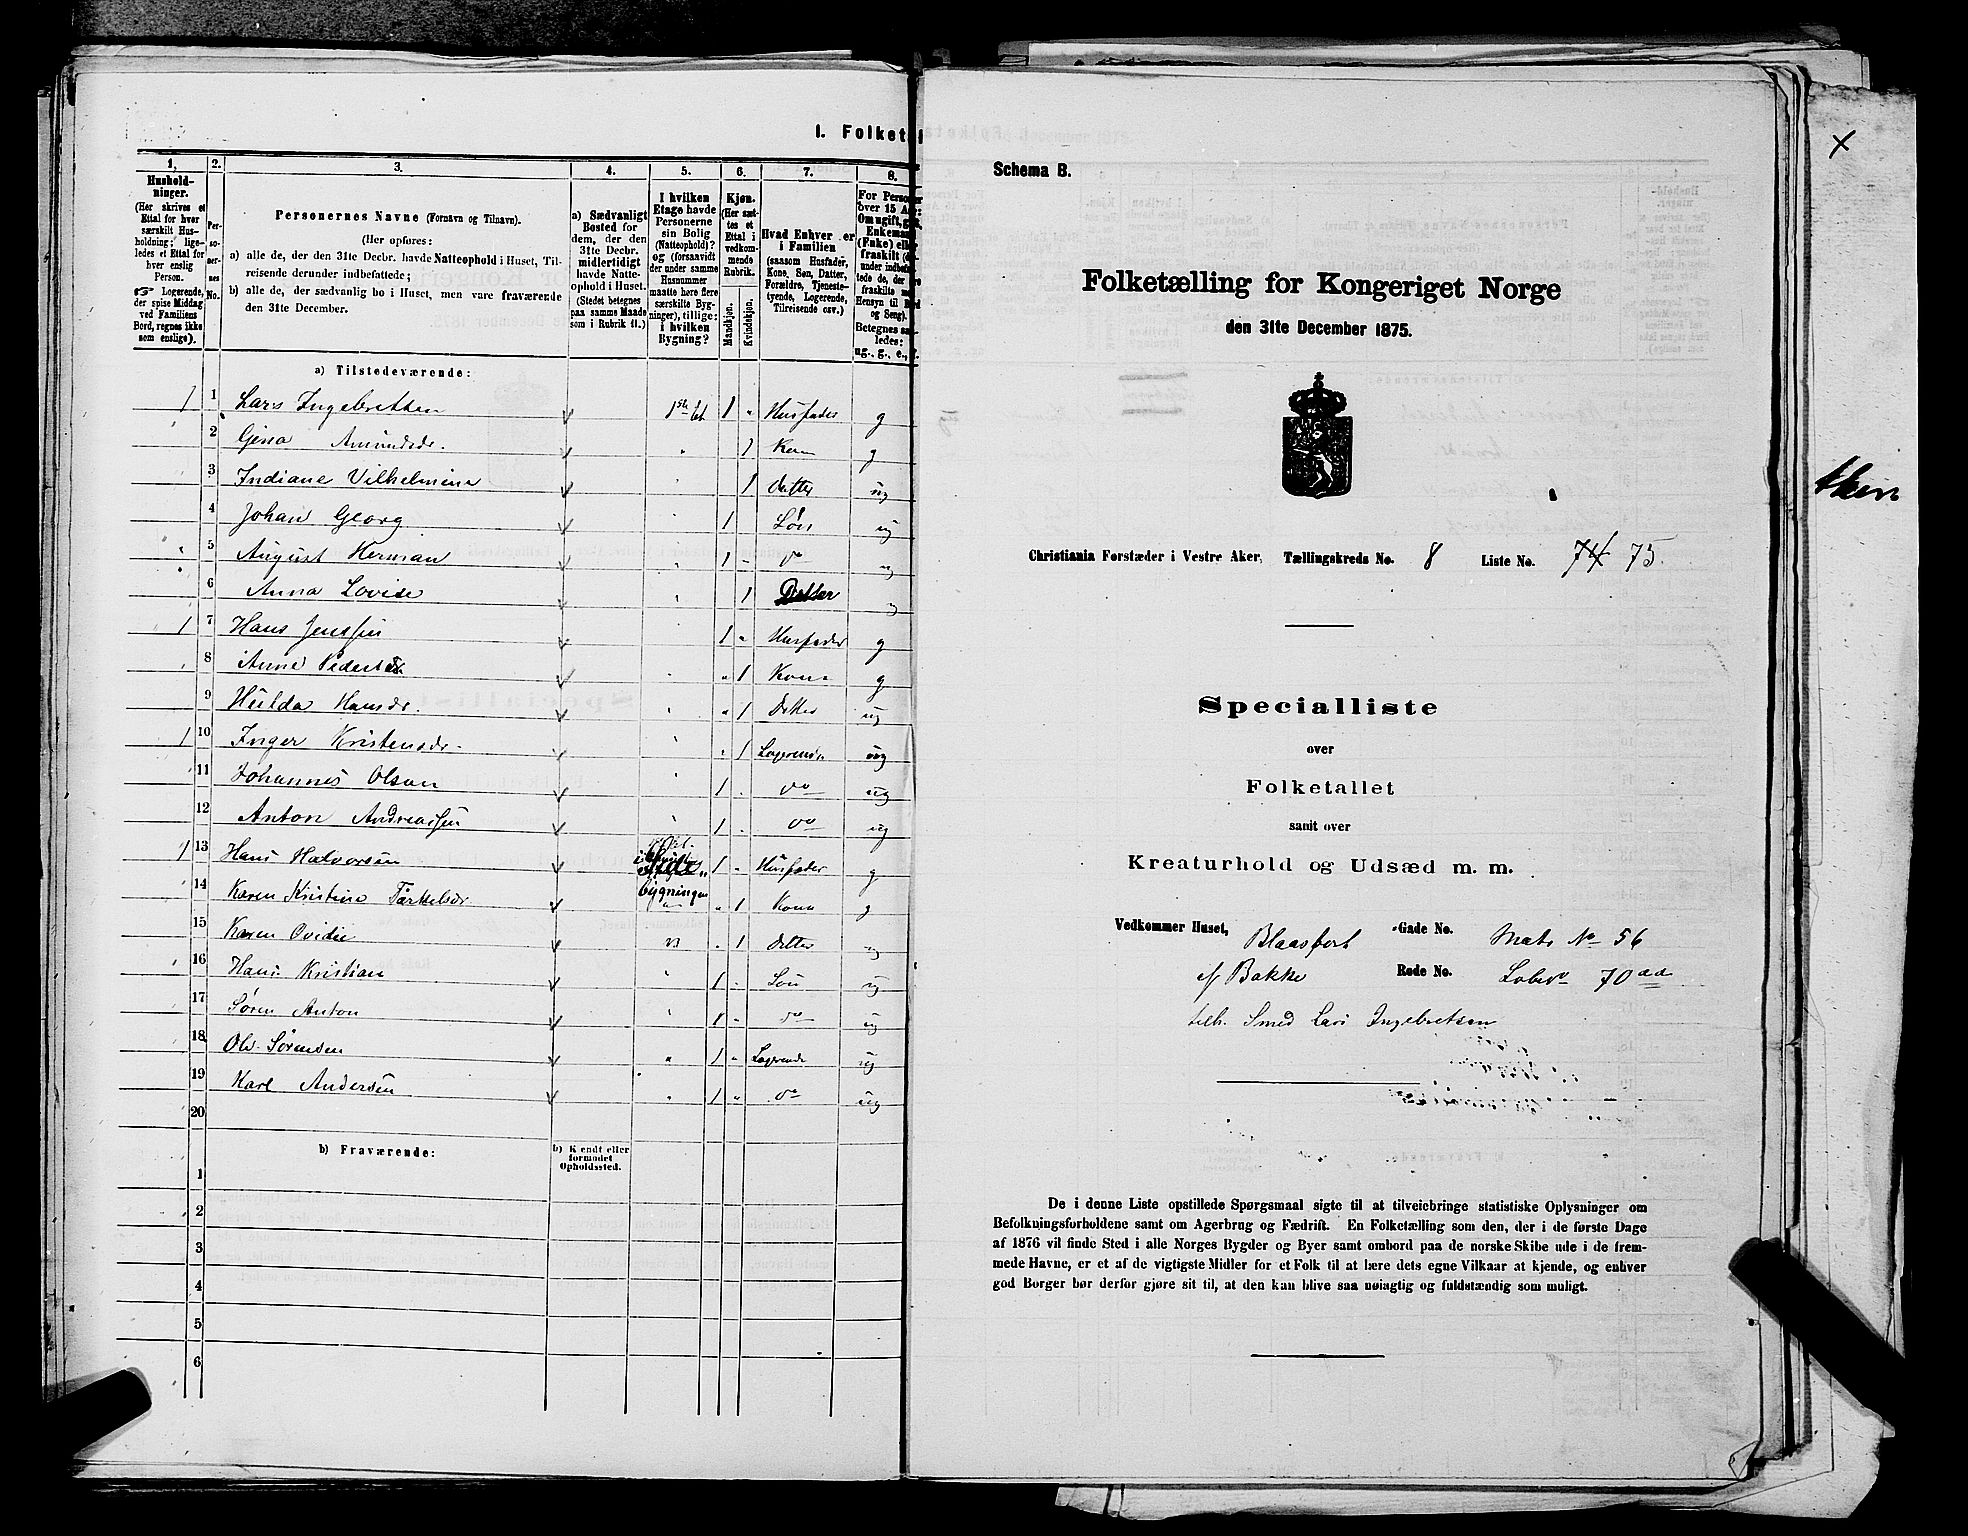 I. Folketæ
1,
2.
3.
4.
5.
6.
7.
8.
Hushold-
ninger.
(Her skrives et
Ettal for hver
særskilt Hus-
holdning; lige-
ledes et Ettal for
hver enslig
Person.
☞ Logerende,
der spise Middag
ved Familiens
Bord, regnes ikke
som enslige).
Per-
so-
ner-
nes
No.
Personernes Navne (Fornavn og Tilnavn).
(Her opføres:
a) alle de, der den 31te Decbr. havde Natteophold i Huset, Til-
reisende derunder indbefattede;
b) alle de, der sædvanlig bo i Huset, men vare fraværende
den 31te December.
a) Sædvanligt
Bosted for
dem, der den
31te Decbr.
midlertidigt
havde Natte-
ophold i Huset.
(Stedet betegnes
paa samme Maade
som i Rubrik 11.)
I hvilken
Etage havde
Personerne
sin Bolig
(Natteophold)?
og (forsaavidt
der under samme
Husnummer
maatte høre flere
særskilte Byg-
ninger), tillige:
i hvilken
Bygning?
Kjøn.
(Her sæt-
tes et
Ettal i
vedkom-
mende
Rubrik.
Mandkjøn.
Kvindekjøn.
Hvad Enhver er
i Familien
(saasom Husfader,
Kone, Søn, Datter,
Forældre, Tjeneste-
tyende, Logerende,
Tilreisende osv.)
For Person
over 15 Aa
Om ugift, g
Enkeman
(Enke) elle
fraskilt
under indbef
tede de, der
fraskilte
Hensyn til B
og Seng).
Betegnes saa
ledes:
ug., g., e.,
a) Tilstedeværende:
1 1 Lars Ingebretsen 1ste Et 1 " Husfader g
2 Gina Amundsdr. " 1 Kone g
3 Indiane Vilhelmine " 1 Datter ug
4 Johan Georg " 1 Søn ug
5 August Herman " 1 " do ug
6 Anna Lovise " 1 Datter ug
1 7 Hans Jenssen 1 " Husfader g
8 Anne Pedersdr. " " 1 Kone g
9 Hulda Hansdr. " " 1 Datter ug
1 10 Inger Kristensdr. " " 1 Logerende ug
11 Johannes Olsen " 1 " do ug
12 Anton Andreassen " 1 " do ug
1 13 Hans Halvorsen bygningen 1 " Husfader g
14 Karen Kristine Tørkelsdr " " 1 Kone g
15 Karen Ovidie " " 1 Datter ug
16 Hans Kristian " 1 " Søn ug
17 Søren Anton " 1 " do ug
18 Ole Sørensen " 1 " Logerende ug
19 Karl Andersen " 1 " do ug
20
b) Fraværende:
b) Kjendt eller
formodet
Opholdssted.
1
2
3
4
5
6
Schema B.
Folketælling for Kongeriget Norge
den 31te December 1875.
Christiania Forstæder i Vestre Aker, Tællingskreds No. 8 Liste No. 74 75.
Specialliste
over
Folketallet
samt over
Kreaturhold og Udsæd m. m.
Vedkommer Huset, Blaasbort Gade No. Matr No 56
Bakke Rode No. Løbno 70 dd
tilh. Smed Lars Ingebretsen
De i denne Liste opstillede Spørgsmaal sigte til at tilveiebringe statistiske Oplysninger om
Befolkningsforholdene samt om Agerbrug og Fædrift. En Folketælling som den, der i de første Dage
af 1876 vil finde Sted i alle Norges Bygder og Byer samt ombord paa de norske Skibe ude i de frem-
mede Havne, er et af de vigtigste Midler for et Folk til at lære dets egne Vilkaar at kjende, og enhver
god Borger bør derfor gjøre sit til, at den kan blive saa nøiagtig og fuldstændig som muligt.
X